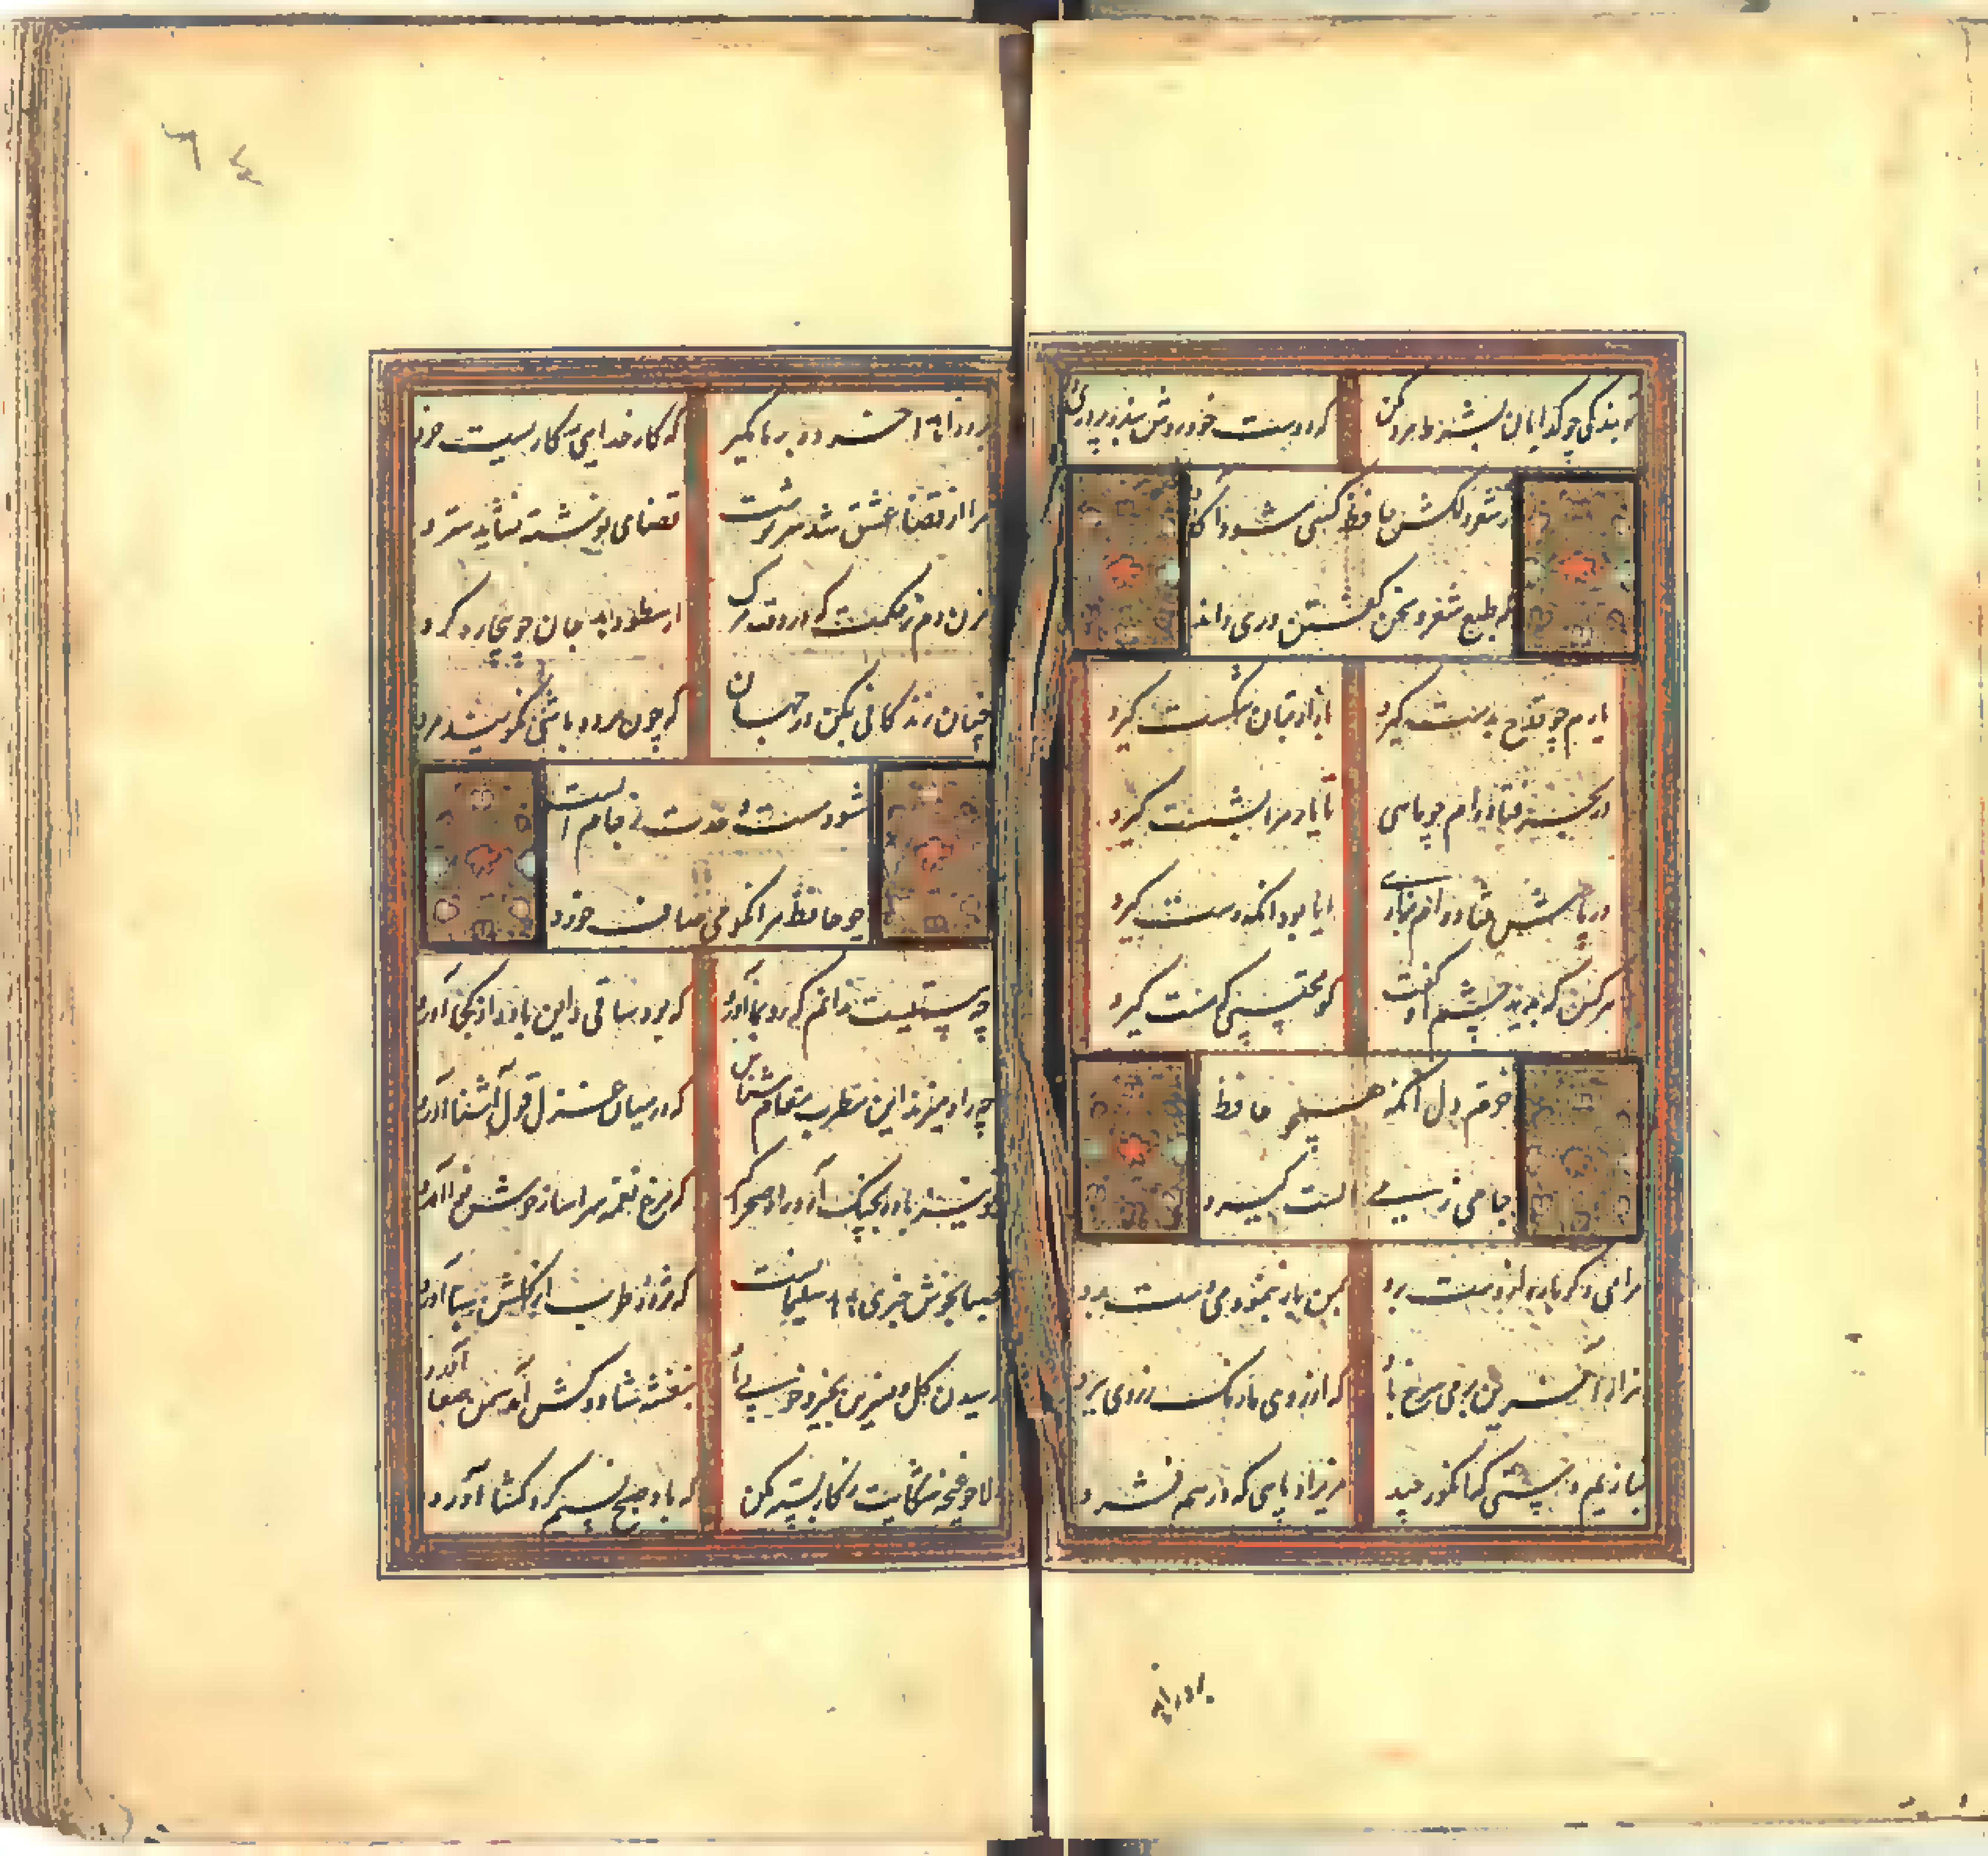 تو بندگی چو گدایان بشرط مزد مکن
که دوست خود روش بنده پروری داند
ز شعر دلکش حافظ کسی شود آگاه
که طبع شعر و سخن گفتن دری داند
یارم چو قدح بدست گیرد
بازار بتان شکست گیرد
در بحر فتاده ام چو ماهی
تا یار مرا بشست گیرد
در پاش فتاده ام بزاری
ایا بود آنکه دست گیرد
هر کس که بدید چشم او گفت
کو محتسبی که مست گیرد
خرم دل آنکه همچو حافظ
جامی ز می الست گیرد
مرا می دگر باره از دست برد
بمن باز بنمود می دست برد
هزار آفرین بر می سرخ باد
که از روی ما رنگ زردی ببرد
بنازیم دستی که انگور چید
مریزاد پایی که در هم فشرد
برو زاهدا خرده بر ما مگیر
که کار خدایی نه کاریست خرد
مرا از قضا عشق شد سرنوشت
قضای نوشته نشاید سترد
مزن دم ز حکمت که در وقت مرگ
ارسطو دهد جان چو بیچاره کرد
چنان زندگانی بکن در جهان
که چون مرده باشی نگویند مرد
شود مست وحدت ز جام الست
چو حافظ هر آنکو می صاف خورد
چه مستیست ندانم که رو بما آورد
که بود ساقی و این باده از کجا آورد
چه راه میزند این مطرب مقام شناس
که در میان غزل قول آشنا آورد
تو نیز باده بچنگ آر و راه صحرا گیر
که مرغ نغمه سرا ساز خوش نوا آورد
صبا بخوش خبری هدهد سلیمانست
که مژده طرب از گلشن سبا آورد
رسیدن گل و نسرین بخیر و خوبی باد
بنفشه شاد و کش آمد سمن صفا آورد
دلا چو غنچه شکایت ز کار بسته مکن
که باد صبح نسیم گره گشا آورد
۶۴
برو زاهدا